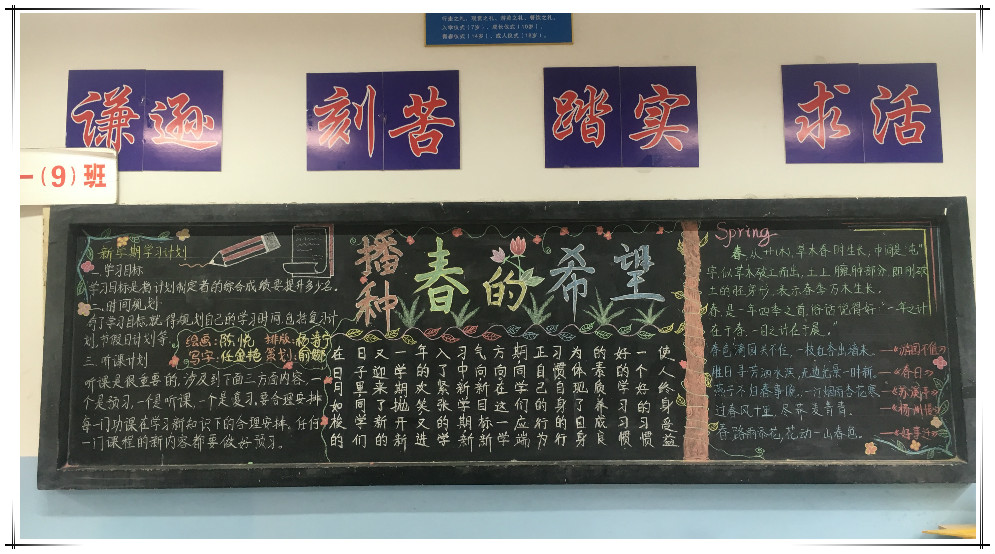 入学仪式(7岁)、成长仪式(10岁)、
青春仪式(14岁)、成人仪式(18岁)。
谦逊 刻苦 踏实 求活
一(9)班
新学期学习计划
一.学习目标
学习目标是指计划制定者的综合成绩要提升多少名。
二.时间规划
有了学习目标,就得规划自己的学习时间,包括复习计
划,节假日计划等。
三.听课计划
听课是很重要的,涉及到下面三方面内容,一
个是预习,一个是听课,一个是复习,要合理安排
每一门功课在学习新知识下的合理安排,任何
一门课程的新内容都要做好预习。
绘画:陈悦 排版:
写字:任金艳 策划:俞娜
播种
春的希望
使人终身受益
一个好的习惯
好的学习习惯
的素质养成良
为体现了自身
习惯自身的行
正自己的行为
期同学们应端
方向在这一学
气向新目标新
习中新学期新
入了紧张的学
年的欢笑又进
一学期抛开新
又迎来了新的
日子里同学们
在日月如梭的
Spring
春,从艹(木),草木春时生长,中间是“屯”
字,似草木破土而出,土上臃肿部分,即刚破
土的胚芽形,表示春季万木生长。
春,是一年四季之首,俗话说得好:“一年之计
在于春,一日之计在于晨。”
春色满园关不住,一枝红杏出墙来。——《游园不值》
胜日寻芳泗水滨,无边光景一时新。——《春日》
燕子不归春事晚,一汀烟雨杏花寒。——《苏溪亭》
过春风十里,尽荠麦青青。——《扬州慢》
春路雨添花,花动一山春色。——《好事近》